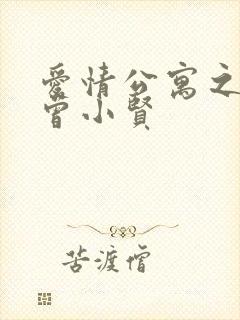 愛情公寓之
曾小賢
苦渡僧